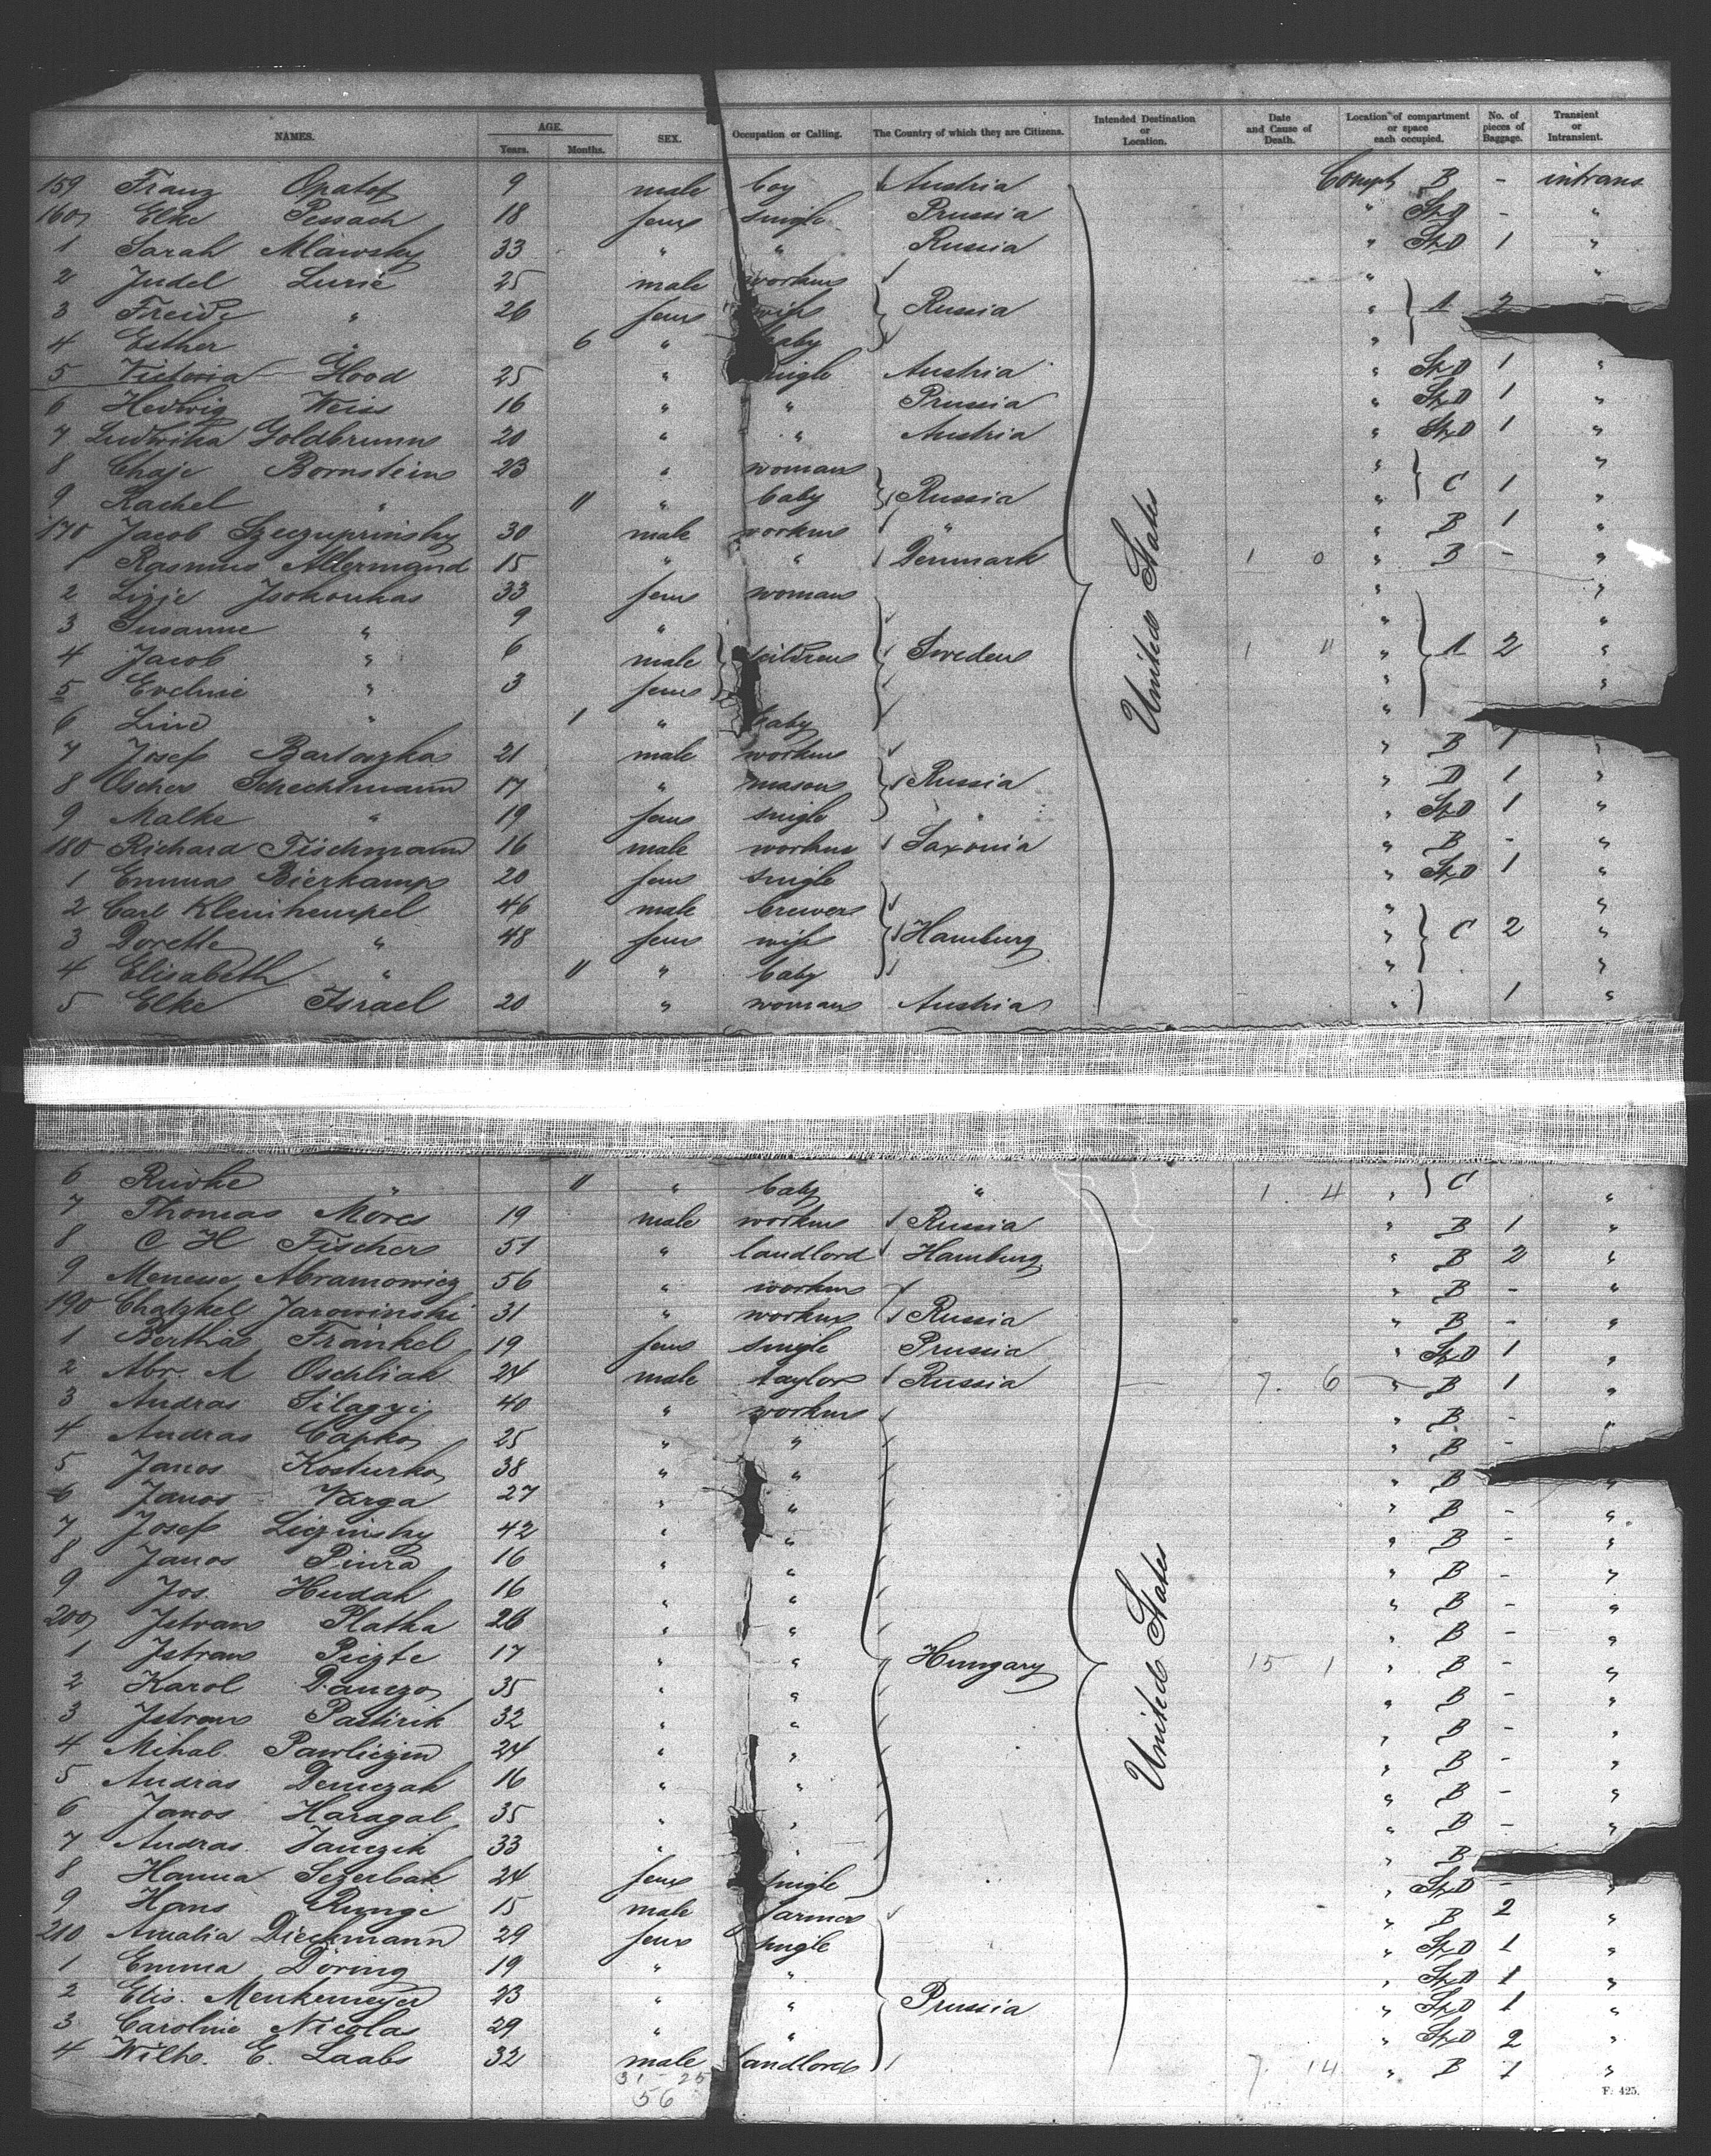 NAMES. AGE. Years. Months. SEX. Occupation or Calling. The Country of which they are Citizens. Intended Destination or Location. Date and Cause of Death. Location of compartment or space each occupied. No. of pieces of Baggage. Transient or Intransient.
159 Franz Opatof 9 male boy Austria Compt B - intrans
160 Elke Pessach 18 fem single Prussia " St D - "
1 Sarah Mlawsky 33 " " Russia " St D 1 "
2 Judel Lurie 25 male workm " "
3 Freide " 26 fem wife Russia " A 2
4 Esther " 6 " baby " "
5 Victoria Hood 25 " single Austria " St D 1 "
6 Hedwig Weiss 16 " " Prussia " St D 1 "
7 Ludwika Goldbrunn 20 " " Austria " St D 1 "
8 Chaje Bornstein 23 " woman " "
9 Rachel " 11 " baby Russia " C 1 "
170 Jacob Szeczuprinsky 30 male workm " " B 1 "
1 Rasmus Allermand 15 " " Denmark 1 0 " B - "
2 Lizie Isokoukas 33 fem woman " "
3 Susanne " 9 " " "
4 Jacob " 6 male children Sweden 1 11 " A 2 "
5 Eveline " 3 fem " "
6 Line " 1 " baby "
7 Josef Bartoszka 21 male workm " B 1 "
8 Oscher Schechtmann 17 " mason Russia " D 1 "
9 Malke " 19 fem single " St D 1 "
180 Richard Tischmann 16 male workm Saxonia " B - "
1 Emma Bierkamp 20 fem single " St D 1 "
2 Carl Kleinhempel 46 male brewer " "
3 Dorette " 48 fem wife Hamburg " C 2 "
4 Elisabeth " 11 " baby " "
5 Elke Israel 20 " woman Austria " 1 "
6 Riwke " 11 " baby " 1 4 " C "
7 Thomas Mores 19 male workm Russia " B 1 "
8 C H Fischer 51 " landlord Hamburg " B 2 "
9 Menesse Abramowicz 56 " workm " B - "
190 Chatzkel Jarowinski 31 " workm Russia " B - "
1 Bertha Frankel 19 fem single Prussia " St D 1 "
2 Abr. M Oschliak 24 male taylor Russia 7. 6 " B 1 "
3 Andras Silagyi 40 " workm " B - "
4 Andras Capko 25 " " " B -
5 Janos Kosturko 38 " " " B "
6 Janos Varga 27 " " " B - "
7 Josef Liczinsky 42 " " " B - "
8 Janos Pinra 16 " " " B - "
9 Jos. Hudak 16 " " " B - "
200 Istvan Platka 26 " " " B - "
1 Istvan Piczte 17 " " Hungary 15 1 " B - "
2 Karol Danczo 35 " " " B - "
3 Istvan Pastirik 32 " " " B - "
4 Mihal. Pawliczin 24 " " " B - "
5 Andras Demczak 16 " " " B - "
6 Janos Haragal 35 " " " B - "
7 Andras Janczik 33 " " " B
8 Hanna Sczerbak 24 fem single " St D - "
9 Hans Runge 15 male farmer " B 2 "
210 Amalia Dieckmann 29 fem single " St D 1 "
1 Emma Döring 19 " " " St D 1 "
2 Elis. Menkemeyer 23 " " Prussia " St D 1 "
3 Caroline Nicolas 29 " " " St D 2 "
4 Wilh. E. Laabs 32 male landlord 7. 14 " B 1 "
United States
United States
31 - 25
56
F. 425.